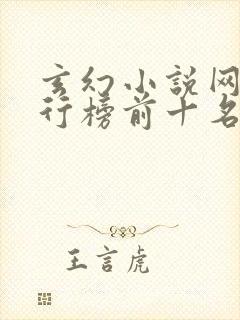 玄幻小说网
行榜前十名
王言虎